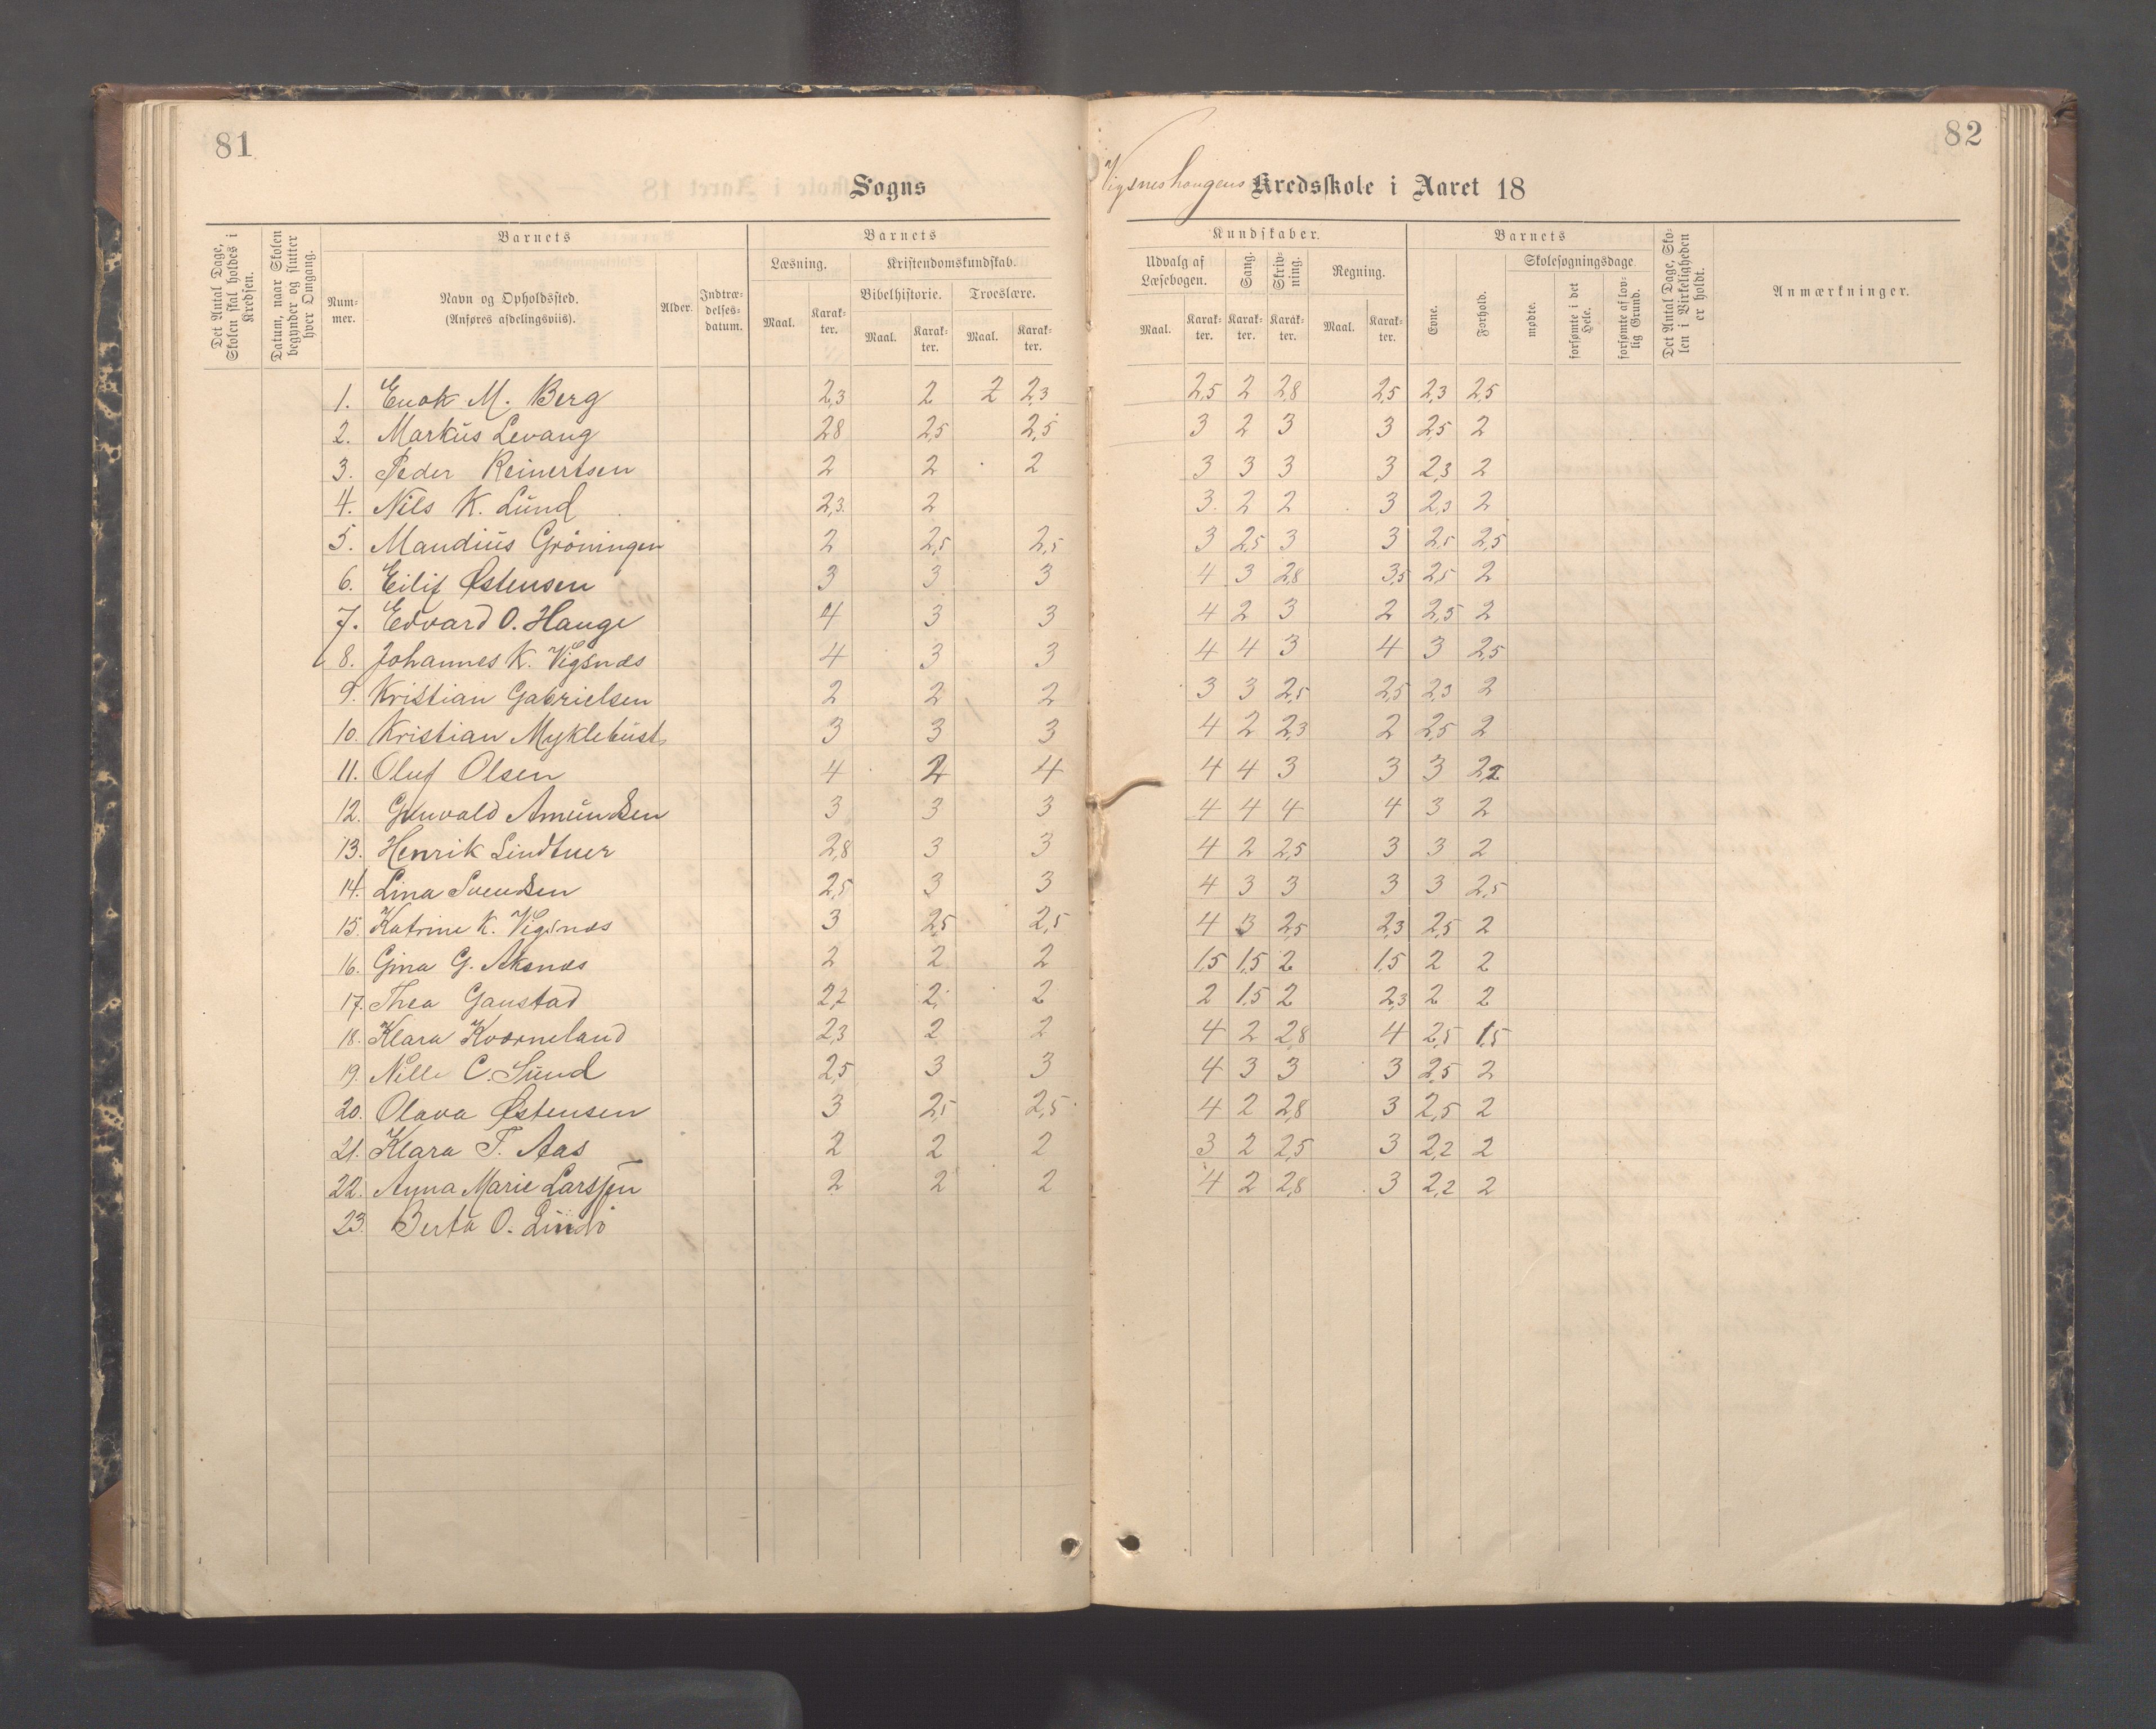 81
Sogns
Det Antal Dage, Skolen skal holdes i Kredsen.
Datum, naar Skolen begynder og slutter hver Omgang.
Barnets
Barnets
Læsning.
Kristendomskundskab.
Bibelhistorie.
Troeslære.
Num-mer.
Navn og Opholdssted.
(Anføres afdelingsviis).
Alder.
Indtræ-delses-datum.
Maal. Karak-ter. Maal. Karak-ter. Maal. Karak-ter.
1. Enok M. Berg 2,3 2 2 2,3
2. Markus Levang 2,8 2,5 2,5
3. Peder Reinertsen 2 2 2
4. Nils K. Lund 2,3 2
5. Mandius Gröningen 2 2,5 2,5
6. Eilif Østensen 3 3 3
7. Edvard O. Hauge 4 3 3
8. Johannes K. Vigsnæs 4 3 3
9. Kristian Gabrielsen 2 2 2
10. Kristian Myklebust 3 3 3
11. Oluf Olsen 4 4
12. Amundsen 3 3 3
13. Henrik Lindtner 2,8 3 3
14. Lina Svendsen 2,5 3 3
15. Katrine K. Vigsnæs 3 2,5 2,5
16. Gina G. Aksnæs 2 2 2
17. Thea Gaustad 2,2 2 2
18. Klara Kværneland 2,3 2 2
19. Nille C. Sund 2,5 3 3
20. Olava Østensen 3 2,5 2,5
21. Klara T. Aas 2 2 2
22. Anna Marie Larssen 2 2 2
23. Berta O. Lindö
82
Vigsneshaugens Kredsskole i Aaret 18
Kundskaber.
Barnets
Udvalg af Læsebogen.
Sang.
Skriv-ning.
Regning.
Evne.
Forhold.
Skolesøgningsdage.
Det Antal Dage, Sko-len i Virkeligheden er holdt.
Anmærkninger.
Maal. Karak-ter. Karak-ter. Karak-ter. Maal. Karak-ter.
mødte.
forsømte i det Hele.
forsømte af lov-lig Grund.
2,5 2 2,8 2,5 2,3 2,5
3 2 3 3 2,5 2
3 3 3 3 2,3 2
3 2 2 3 2,3 2
3 2,5 3 3 2,5 2,5
4 3 2,8 3,5 2,5 2
4 2 3 2 2,5 2
4 4 3 4 3 2,5
3 3 2,5 2,5 2,3 2
4 2 2,3 2 2,5 2
4 4 3 3 3 2,2
4 4 4 4 3 2
4 2 2,5 3 3 2
4 3 3 3 3 2,5
4 3 2,5 2,3 2,5 2
1,5 1,5 2 1,5 2 2
2 1,5 2 2,3 2 2
4 2 2,8 4 2,5 1,5
4 3 3 3 2,5 2
4 2 2,8 3 2,5 2
3 2 2,5 3 2,2 2
4 2 2,8 3 2,2 2